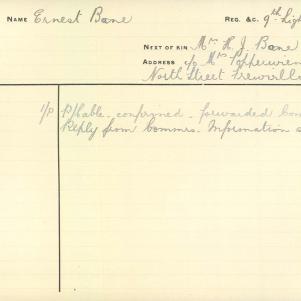 NAME Ernest Bane REG. &C. 9th Lig
NEXT OF KIN Mrs H. J. Bane
ADDRESS c/o Mrs
North Street Frewvill
1/P P/Cable confirmed forwarded Com
Reply from Commrs. Information a